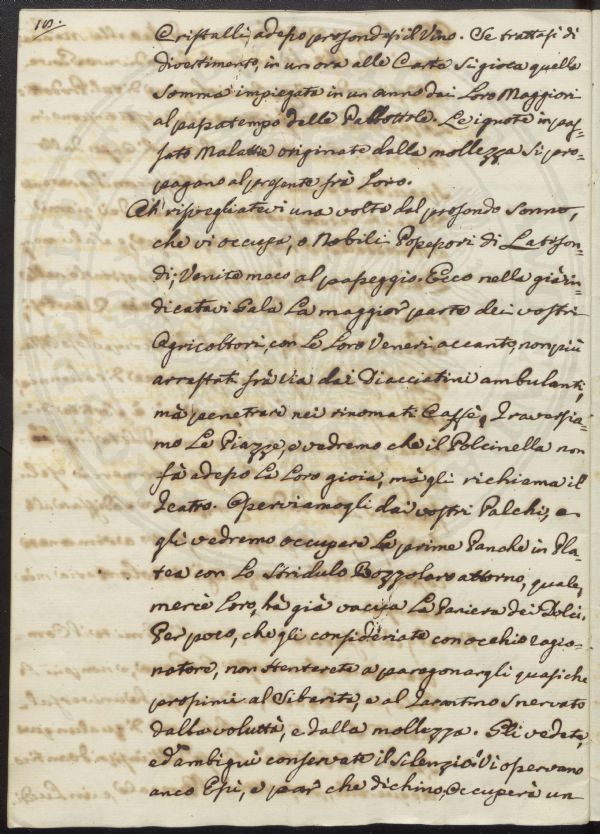 18.
Cristalli, adesso profondesi il Vino. Se trattasi di
divertimento, in un ora alle Carte si gioca quella
Somma impiegata in un anno dai Loro Maggiori
al passatempo delle Pallottole. Le ignote in pas-
sato Malattie originate dalla mollezza si pro-
pagano al presente frà Loro.
Ah! risvegliatevi una volta dal profondo sonno,
che vi occupa, o Nobili Possessori di Latifon-
di; Venite meco al passeggio. Ecco nella già in-
dicatavi Gala La maggior parte dei vostri
Agricoltori, con Le Loro Veneri accanto, non più
arrestati frà via dai Diacciatini ambulanti,
mà penetrare nei rinomati Caffè. Traversia-
mo Le Piazze, e vedremo che il Polcinella non
fà adesso La Loro gioia, mà gli richiama il
Teatro. Osserviamogli dai vostri Palchi, e
gli vedremo occupare Le prime Panche in Pla-
tea con Lo Stridulo Bozzolaro attorno, quale,
mercè Loro, hà già vacua La Paniera dei Dolci.
Per poco, che gli consideriate con occhio ragio-
natore, non stenterete a paragonargli quasiche
prossimi al Sibarita, e al Tarantino Snervato
dalla voluttà, e dalla mollezza. Gli vedete,
ed ambigui conservate il silenzio: Vi osservano
anco Essi, e par che dichino, occuperà un